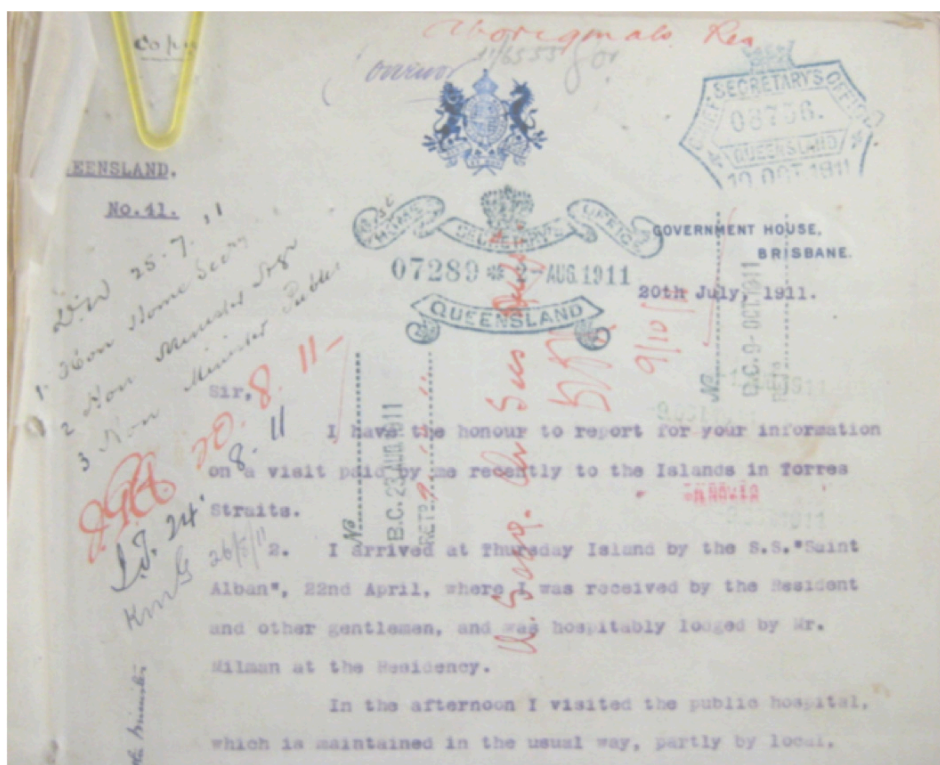 copy
Aboriginals Res
Governor 11/6555 for
CHIEF SECRETARY'S OFFICE
08756.
QUEENSLAND
10 OCT 1911
QUEENSLAND.
No.41.
HOME SECRETARY'S OFFICE
07289 2-AUG.1911
QUEENSLAND
GOVERNMENT HOUSE,
BRISBANE.
20th July, 1911.
25.7.11
1. Hon Home Secy
2 Hon Minister
3 Hon Minister Public
20.8.11
8. 11
24
26/8/11
9/10/11
No
B.C. 23 AUG. 1911
RETD
No
B.C. 9-OCT. 1911
RETD
Sir,
I have the honour to report for your information
on a visit paid by me recently to the Islands in Torres
Straits.
2. I arrived at Thursday Island by the S.S."Saint
Alban", 22nd April, where I was received by the Resident
and other gentlemen, and was hospitably lodged by Mr.
Milman at the Residency.
In the afternoon I visited the public hospital,
which is maintained in the usual way, partly by local,
the Minister